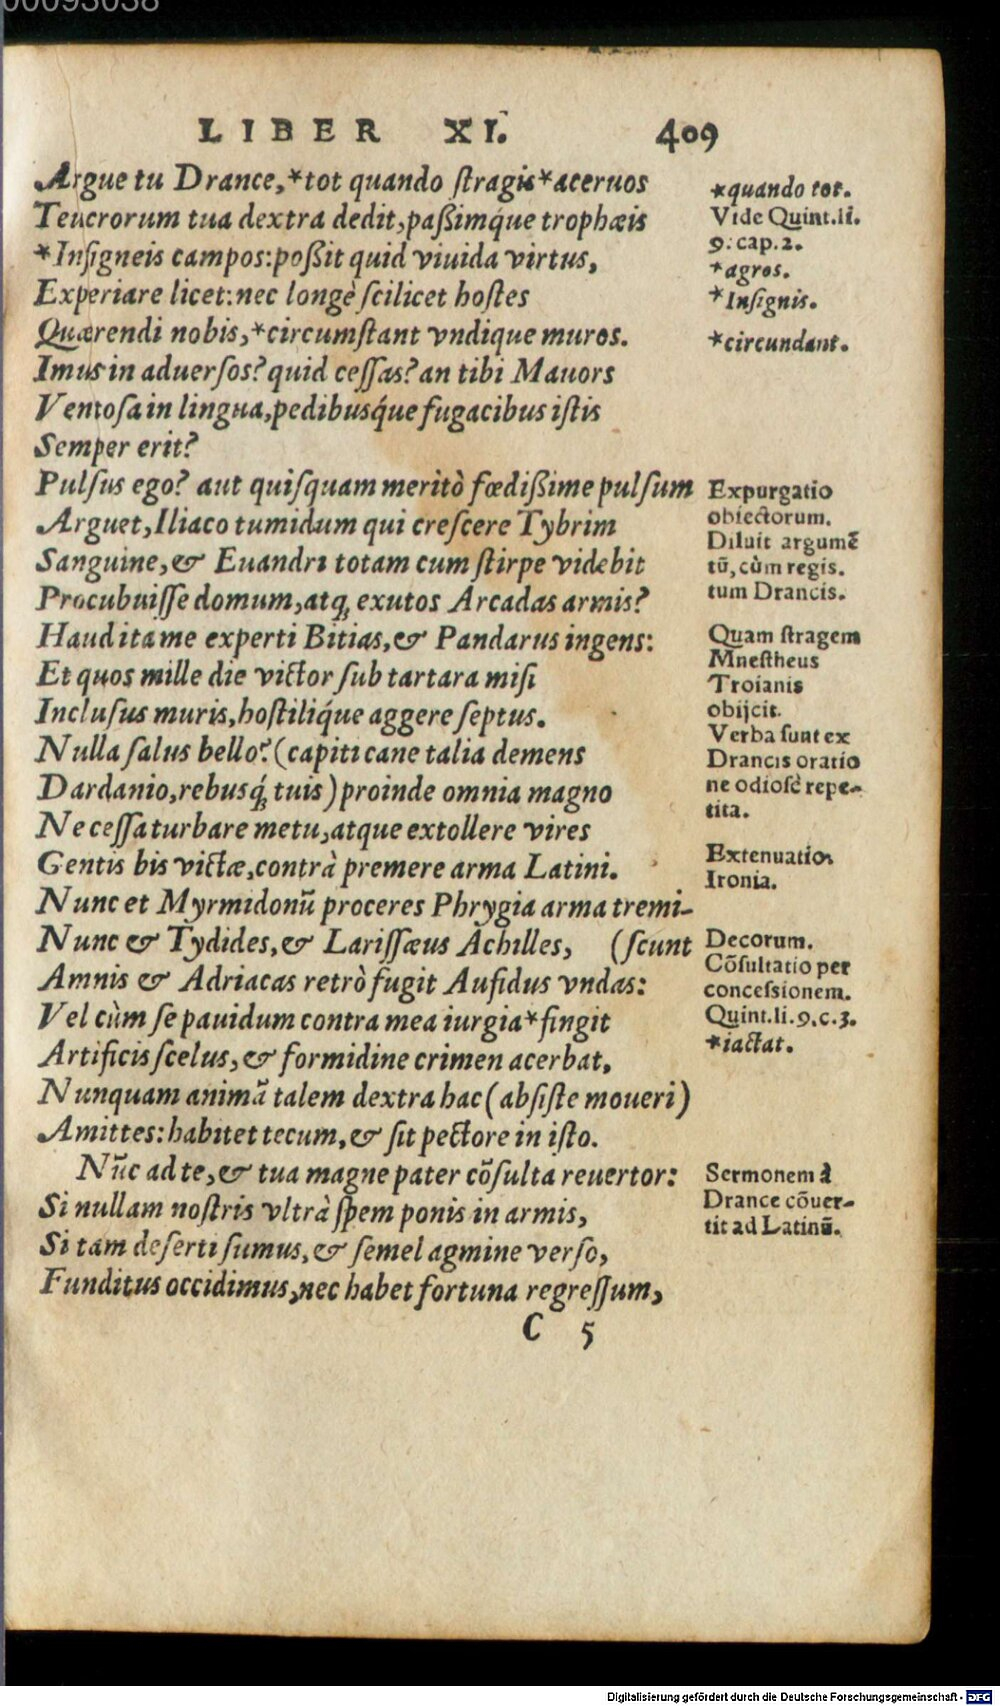 00093038
LIBER XI. 409
Argue tu Drance,*tot quando ſtragis*aceruos
Teucrorum tua dextra dedit,paßimq́ue trophæis
*Inſigneis campos:poßit quid viuida virtus,
Experiare licet:nec longè ſcilicet hoſtes
Quærendi nobis,*circumſtant vndique muros.
Imus in aduerſos?quid ceſſas?an tibi Mauors
Ventoſa in lingua,pedibusq́ue fugacibus iſtis
Semper erit?
Pulſus ego? aut quiſquam meritò fœdißime pulſum
Arguet,Iliaco tumidum qui creſcere Tybrim
Sanguine,& Euandri totam cum ſtirpe videbit
Procubuiſſe domum,atq; exutos Arcadas armis?
Haud ita me experti Bitias,& Pandarus ingens:
Et quos mille die victor ſub tartara miſi
Incluſus muris,hoſtiliq́ue aggere ſeptus.
Nulla ſalus bello?(capiti cane talia demens
Dardanio,rebusq́; tuis)proinde omnia magno
Ne ceſſa turbare metu,atque extollere vires
Gentis bis victæ,contrà premere arma Latini.
Nunc et Myrmidonũ proceres Phrygia arma tremi-
Nunc & Tydides,& Lariſſæus Achilles, (ſcunt
Amnis & Adriacas retrò fugit Aufidus vndas:
Vel cùm ſe pauidum contra mea iurgia*fingit
Artificis ſcelus,& formidine crimen acerbat.
Nunquam animã talem dextra hac(abſiſte moueri)
Amittes:habitet tecum,& ſit pectore in iſto.
Nũc ad te,& tua magne pater cõſulta reuertor:
Si nullam noſtris vltrà ſpem ponis in armis,
Si tam deſerti ſumus,& ſemel agmine verſo,
Funditus occidimus,nec habet fortuna regreſſum,
C 5
*quando tot.
Vide Quint.li.
9.cap.2.
*agros.
*Inſignis.
*circundant.
Expurgatio
obiectorum.
Diluit argumẽ
tũ,cùm regis.
tum Drancis.
Quam ſtragem
Mneſtheus
Troianis
obijcit.
Verba ſunt ex
Drancis oratio
ne odioſè repe-
tita.
Extenuatio.
Ironia.
Decorum.
Cõſultatio per
conceſsionem.
Quint.li.9.c.3.
*iactat.
Sermonem à
Drance cõuer-
tit ad Latinũ.
Digitalisierung gefördert durch die Deutsche Forschungsgemeinschaft - DFG